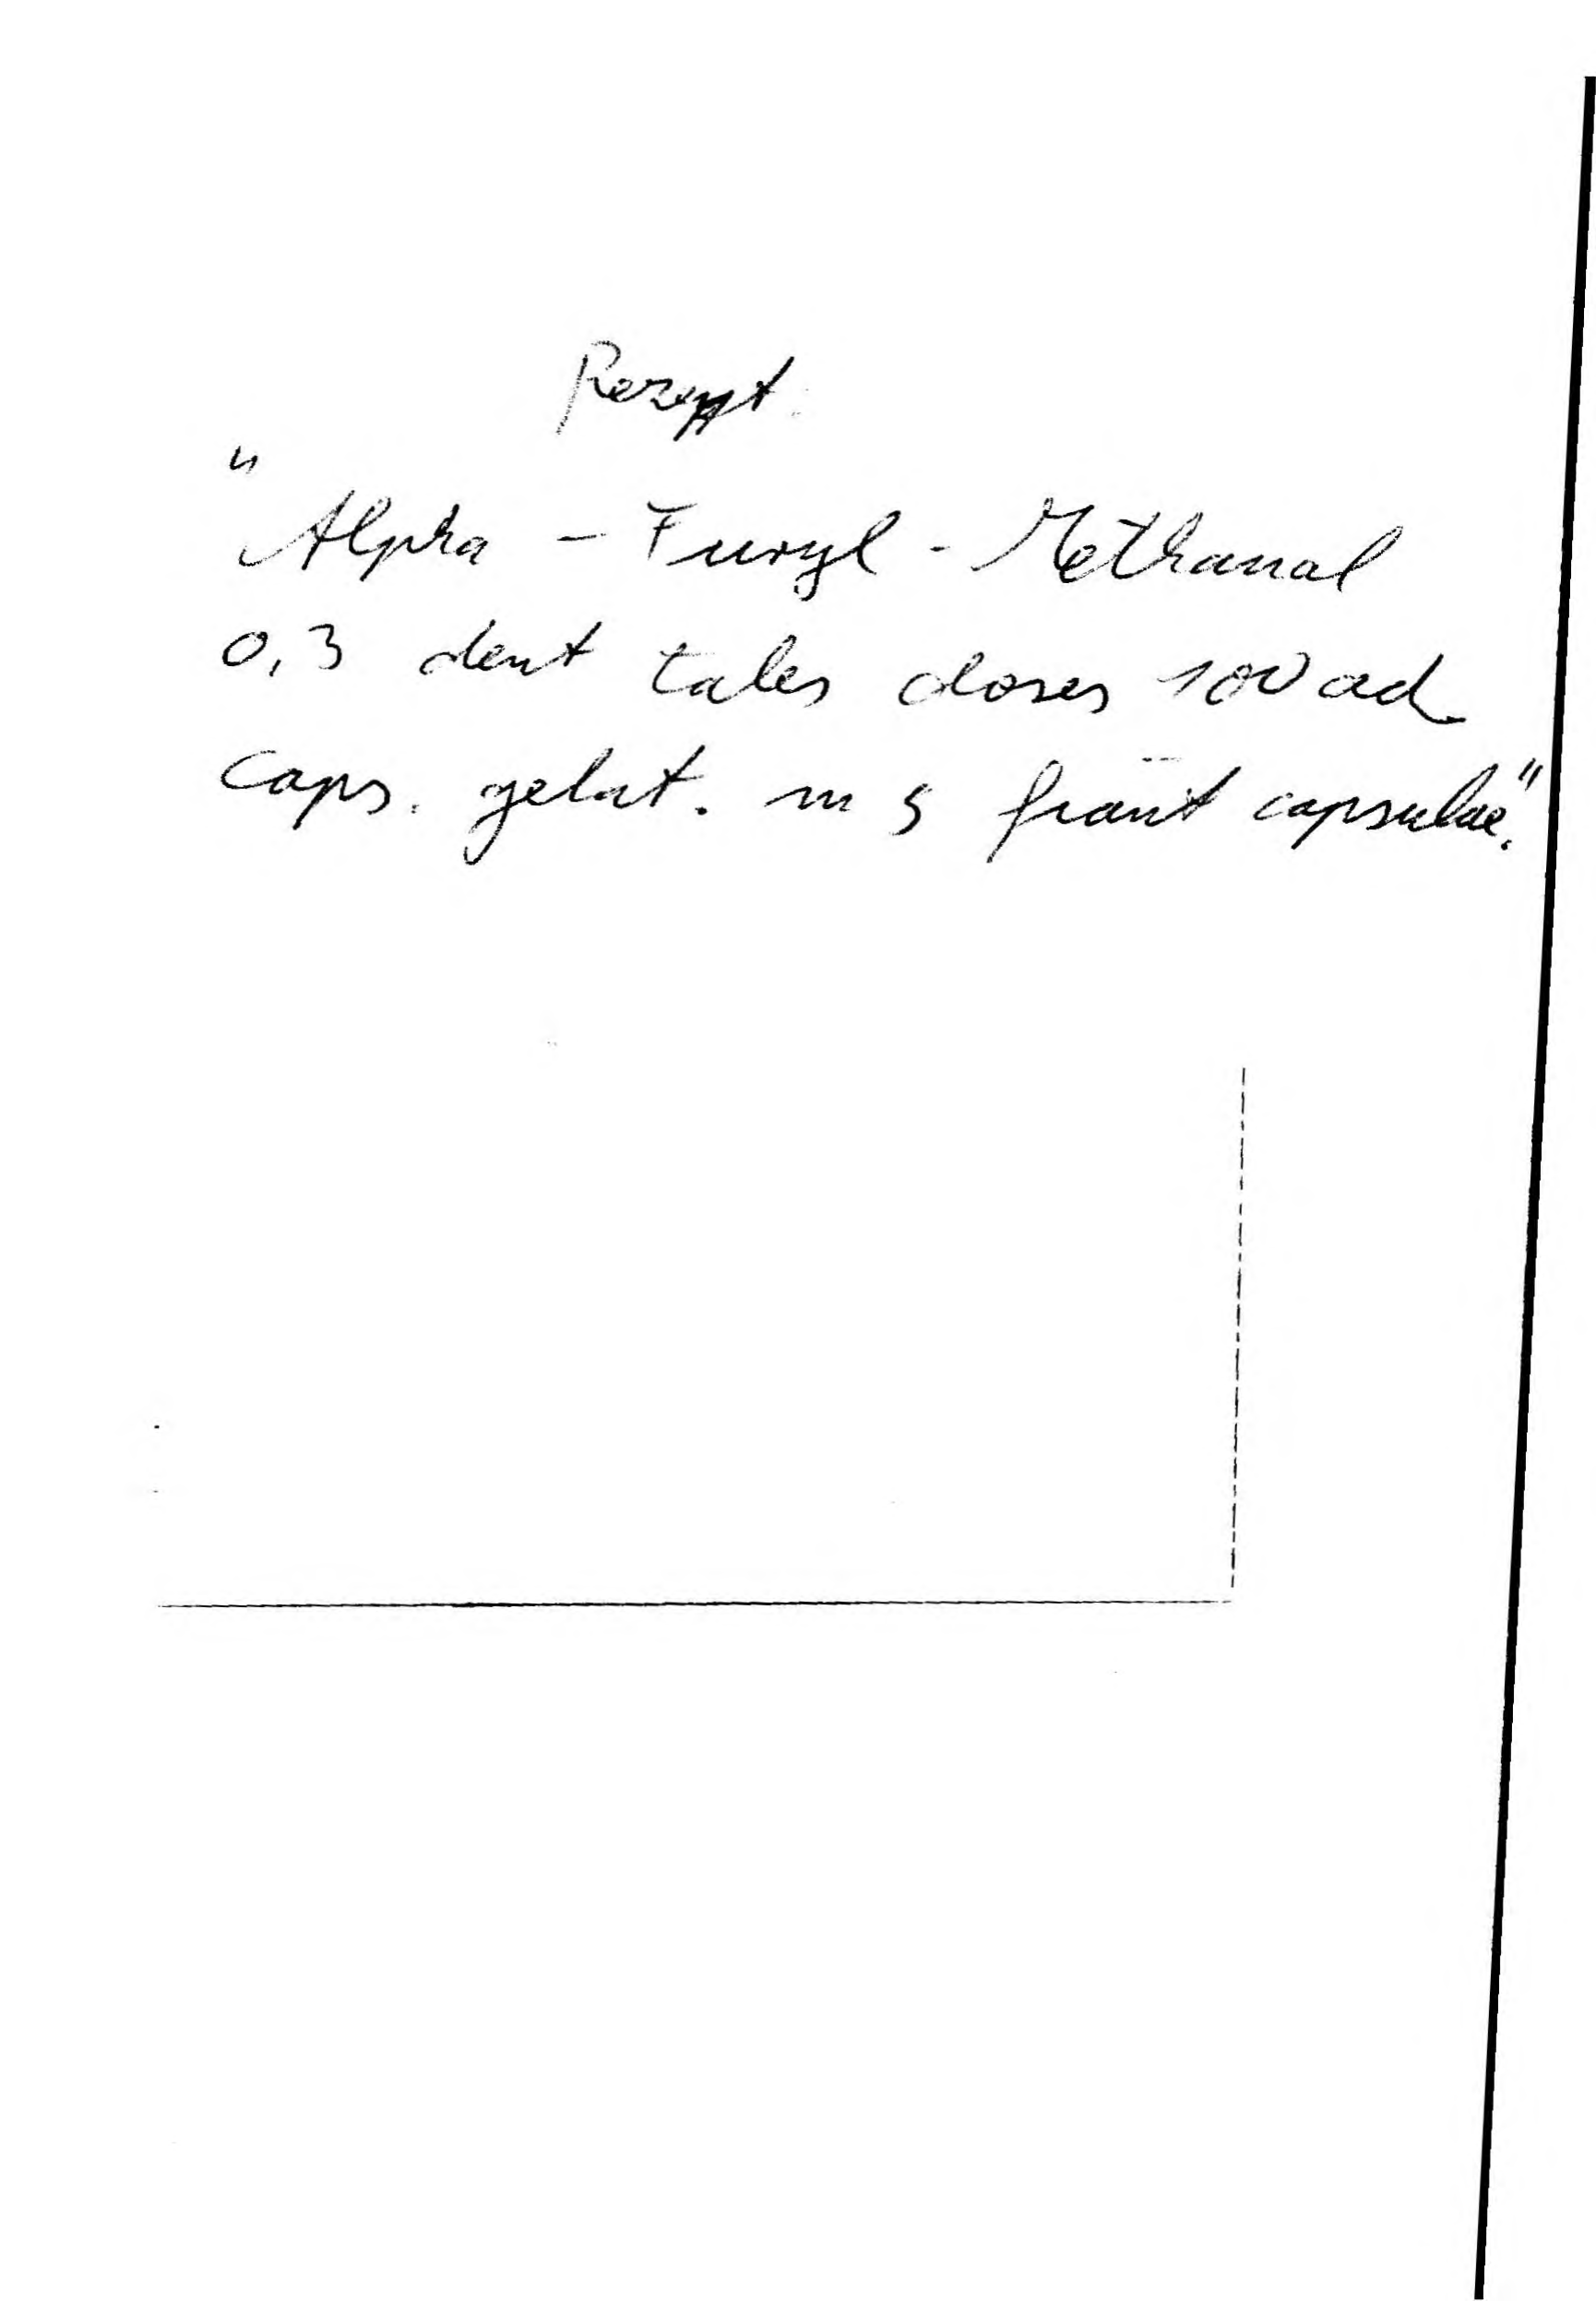 Rezept:
"
Alpha - Furyl - Methanal
0,3 dent tales doses 100 ad
caps. gelat. m 5 fiant capsulae."